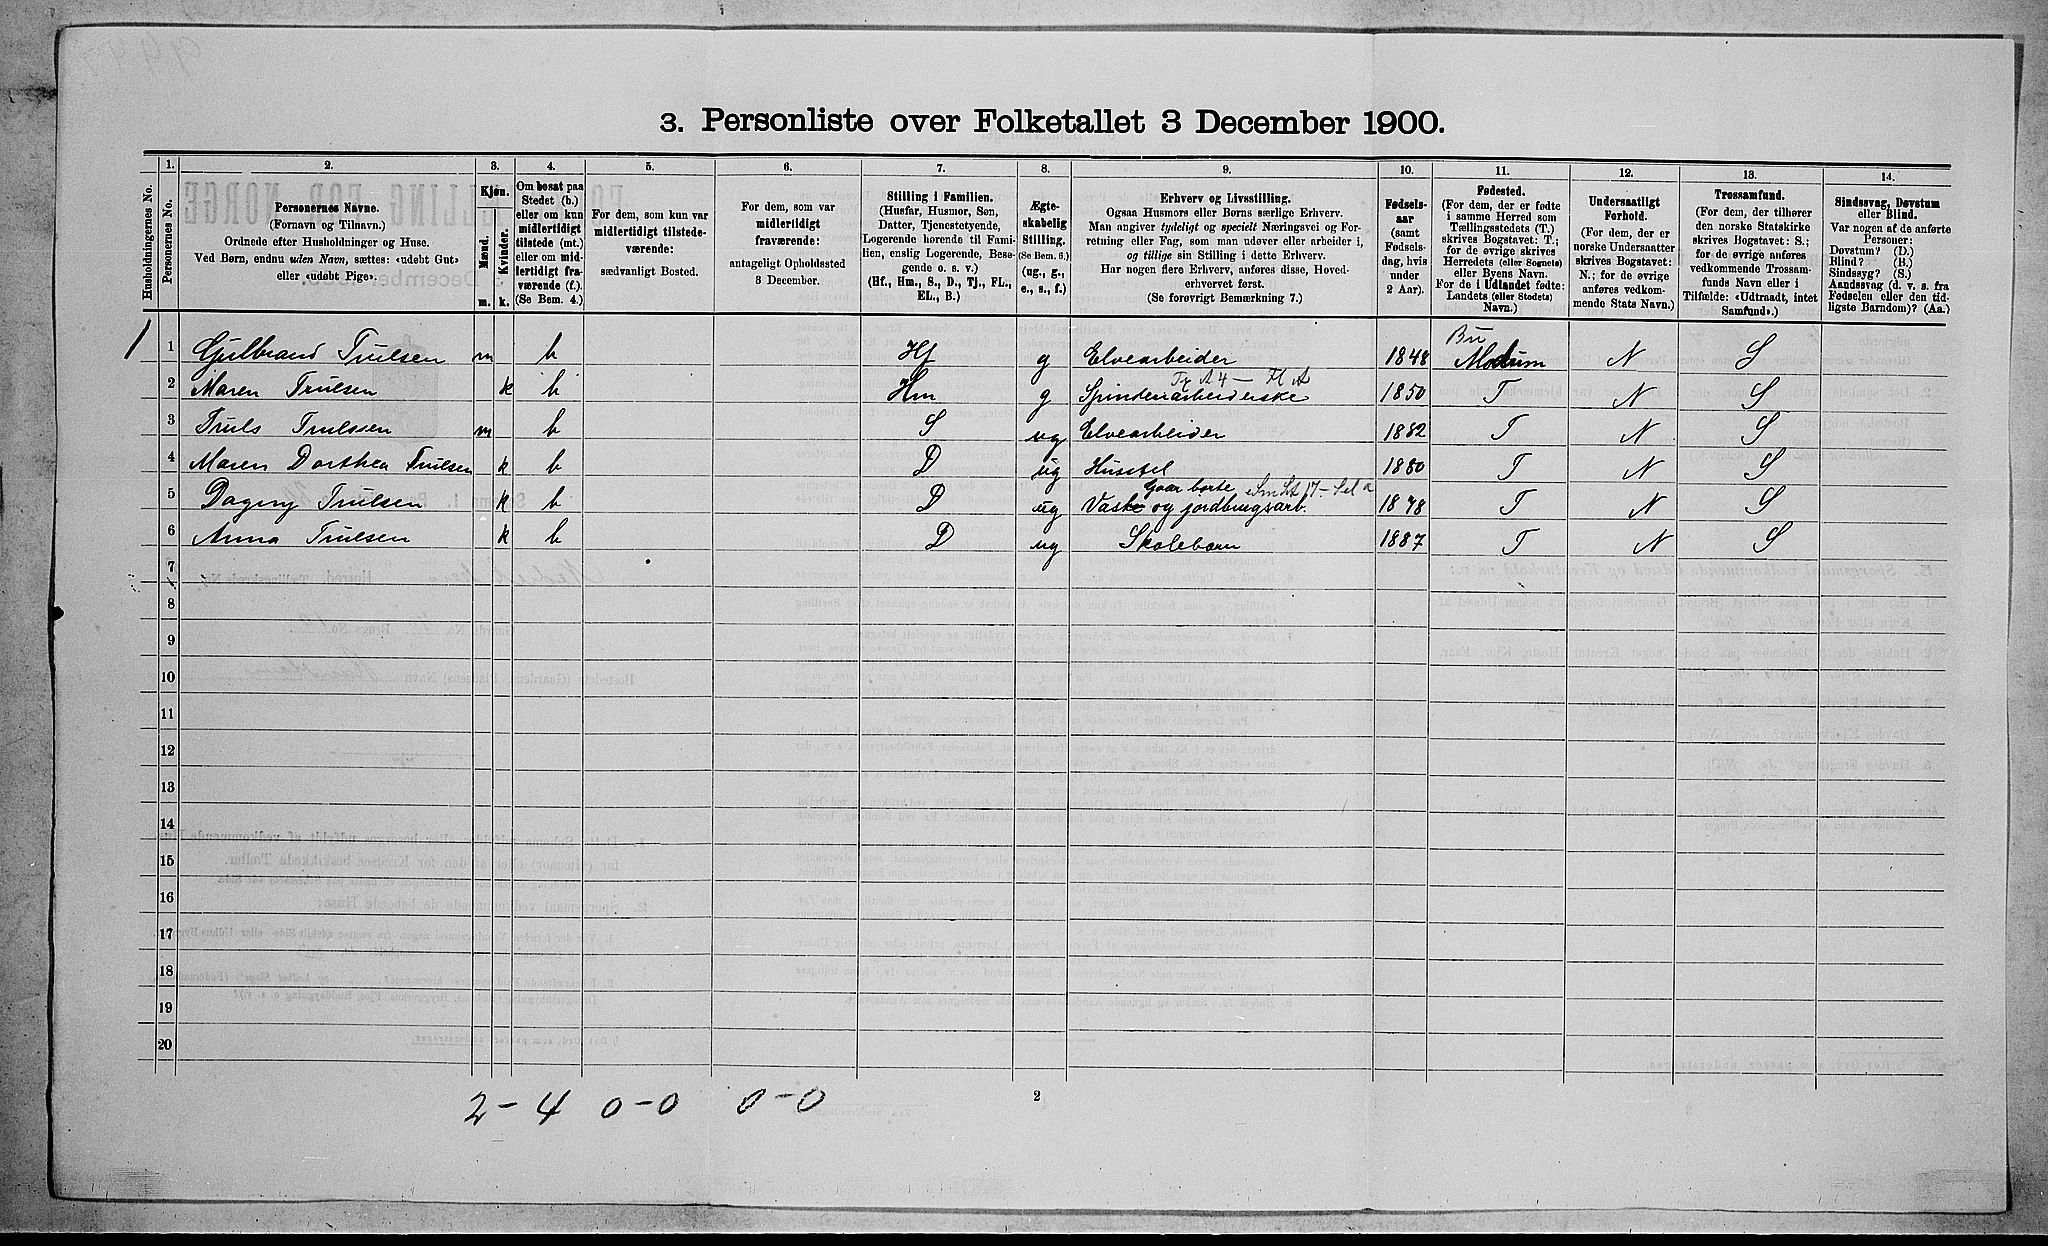 3. Personliste over Folketallet 3 December 1900.
1. 2. 3. 4. 5. 6. 7. 8. 9. 10. 11. 12. 13. 14.
Husholdningernes No.
Personernes No.
Personernes Navne.
(Fornavn og Tilnavn.)
Ordnede efter Husholdninger og Huse.
Ved Børn, endnu uden Navn, sættes: «udøbt Gut»
eller «udøbt Pige».
Kjøn.
Mænd.
Kvinder.
m. k.
Om bosat paa
Stedet (b.)
eller om kun
midlertidigt
tilstede (mt.)
eller om mid-
lertidigt fra-
værende (f.).
(Se Bem. 4.)
For dem, som kun var
midlertidigt tilstede-
værende:
sædvanligt Bosted.
For dem, som var
midlertidigt
fraværende:
antageligt Opholdssted
3 December.
Stilling i Familien.
(Husfar, Husmor, Søn,
Datter, Tjenestetyende,
Logerende hørende til Fami-
lien, enslig Logerende, Besø-
gende o. s. v.)
(Hf., Hm., S., D., Tj., FL.,
EL., B.)
Ægte-
skabelig
Stilling.
(Se Bem. 6.)
(ug., g.,
e., s., f.)
Erhverv og Livsstilling.
Ogsaa Husmors eller Børns særlige Erhverv.
Man angiver tydeligt og specielt Næringsvei og For-
retning eller Fag, som man udøver eller arbeider i,
og tillige sin Stilling i dette Erhverv.
Har nogen flere Erhverv, anføres disse, Hoved-
erhvervet først.
(Se forøvrigt Bemærkning 7.)
Fødsels-
aar
(samt
Fødsels-
dag, hvis
under
2 Aar).
Fødested.
(For dem, der er fødte
i samme Herred som
Tællingsstedets (T.)
skrives Bogstavet: T.;
for de øvrige skrives
Herredets (eller Sognets)
eller Byens Navn.
For de i Udlandet fødte:
Landets (eller Stedets)
Navn.)
Undersaatligt
Forhold.
(For dem, der er
norske Undersaatter
skrives Bogstavet:
N.; for de øvrige
anføres vedkom-
mende Stats Navn.)
Trossamfund.
(For dem, der tilhører
den norske Statskirke
skrives Bogstavet: S.;
for de øvrige anføres
vedkommende Trossam-
funds Navn eller i
Tilfælde: «Udtraadt, intet
Samfund».)
Sindssvag, Døvstum
eller Blind.
Var nogen af de anførte
Personer:
Døvstum? (D.)
Blind? (B.)
Sindssyg? (S.)
Aandssvag (d. v. s. fra
Fødselen eller den tid-
ligste Barndom)? (Aa.)
Bu
1 1 Gulbrand Trulsen m b Hf g Elvearbeider 1848 Modum N S
Tx A 4 — Fl A
2 Maren Trulsen k b Hm g Spinderiarbeiderske 1850 T N S
3 Truls Trulssen m b S ug Elvearbeider 1882 T N S
4 Maren Dorthea Trulsen k b D ug Husstel 1880 T N S
Gaar borte
5 Dagny Trulsen k b D ug Vask og jordbrugsarb. 1878 T N S
6 Anna Trulsen k b D ug Skolebarn 1887 T N S
7
8
9
10
11
12
13
14
15
16
17
18
19
20
2 - 4 0 - 0 0 - 0
2